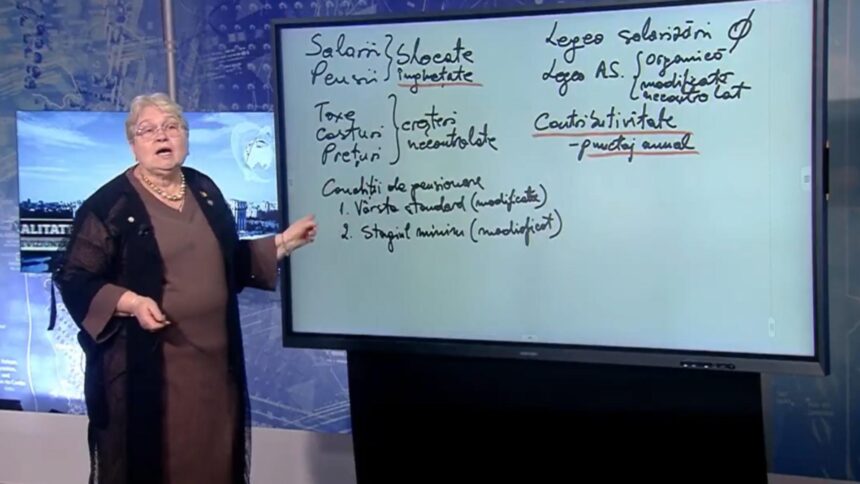 Salarii
Pensii
Blocate
înghețate
Taxe
Costuri
Prețuri
creșteri
necontrolate
Condiții de pensionare
1. Vârsta standard (modificată)
2. Stagiul minim (modificat)
Legea salarizării Ø
Legea A.S.
organică
modificată
necontrolat
Contributivitate
- punctaj anual
ALITATEA
EVIZIUNE